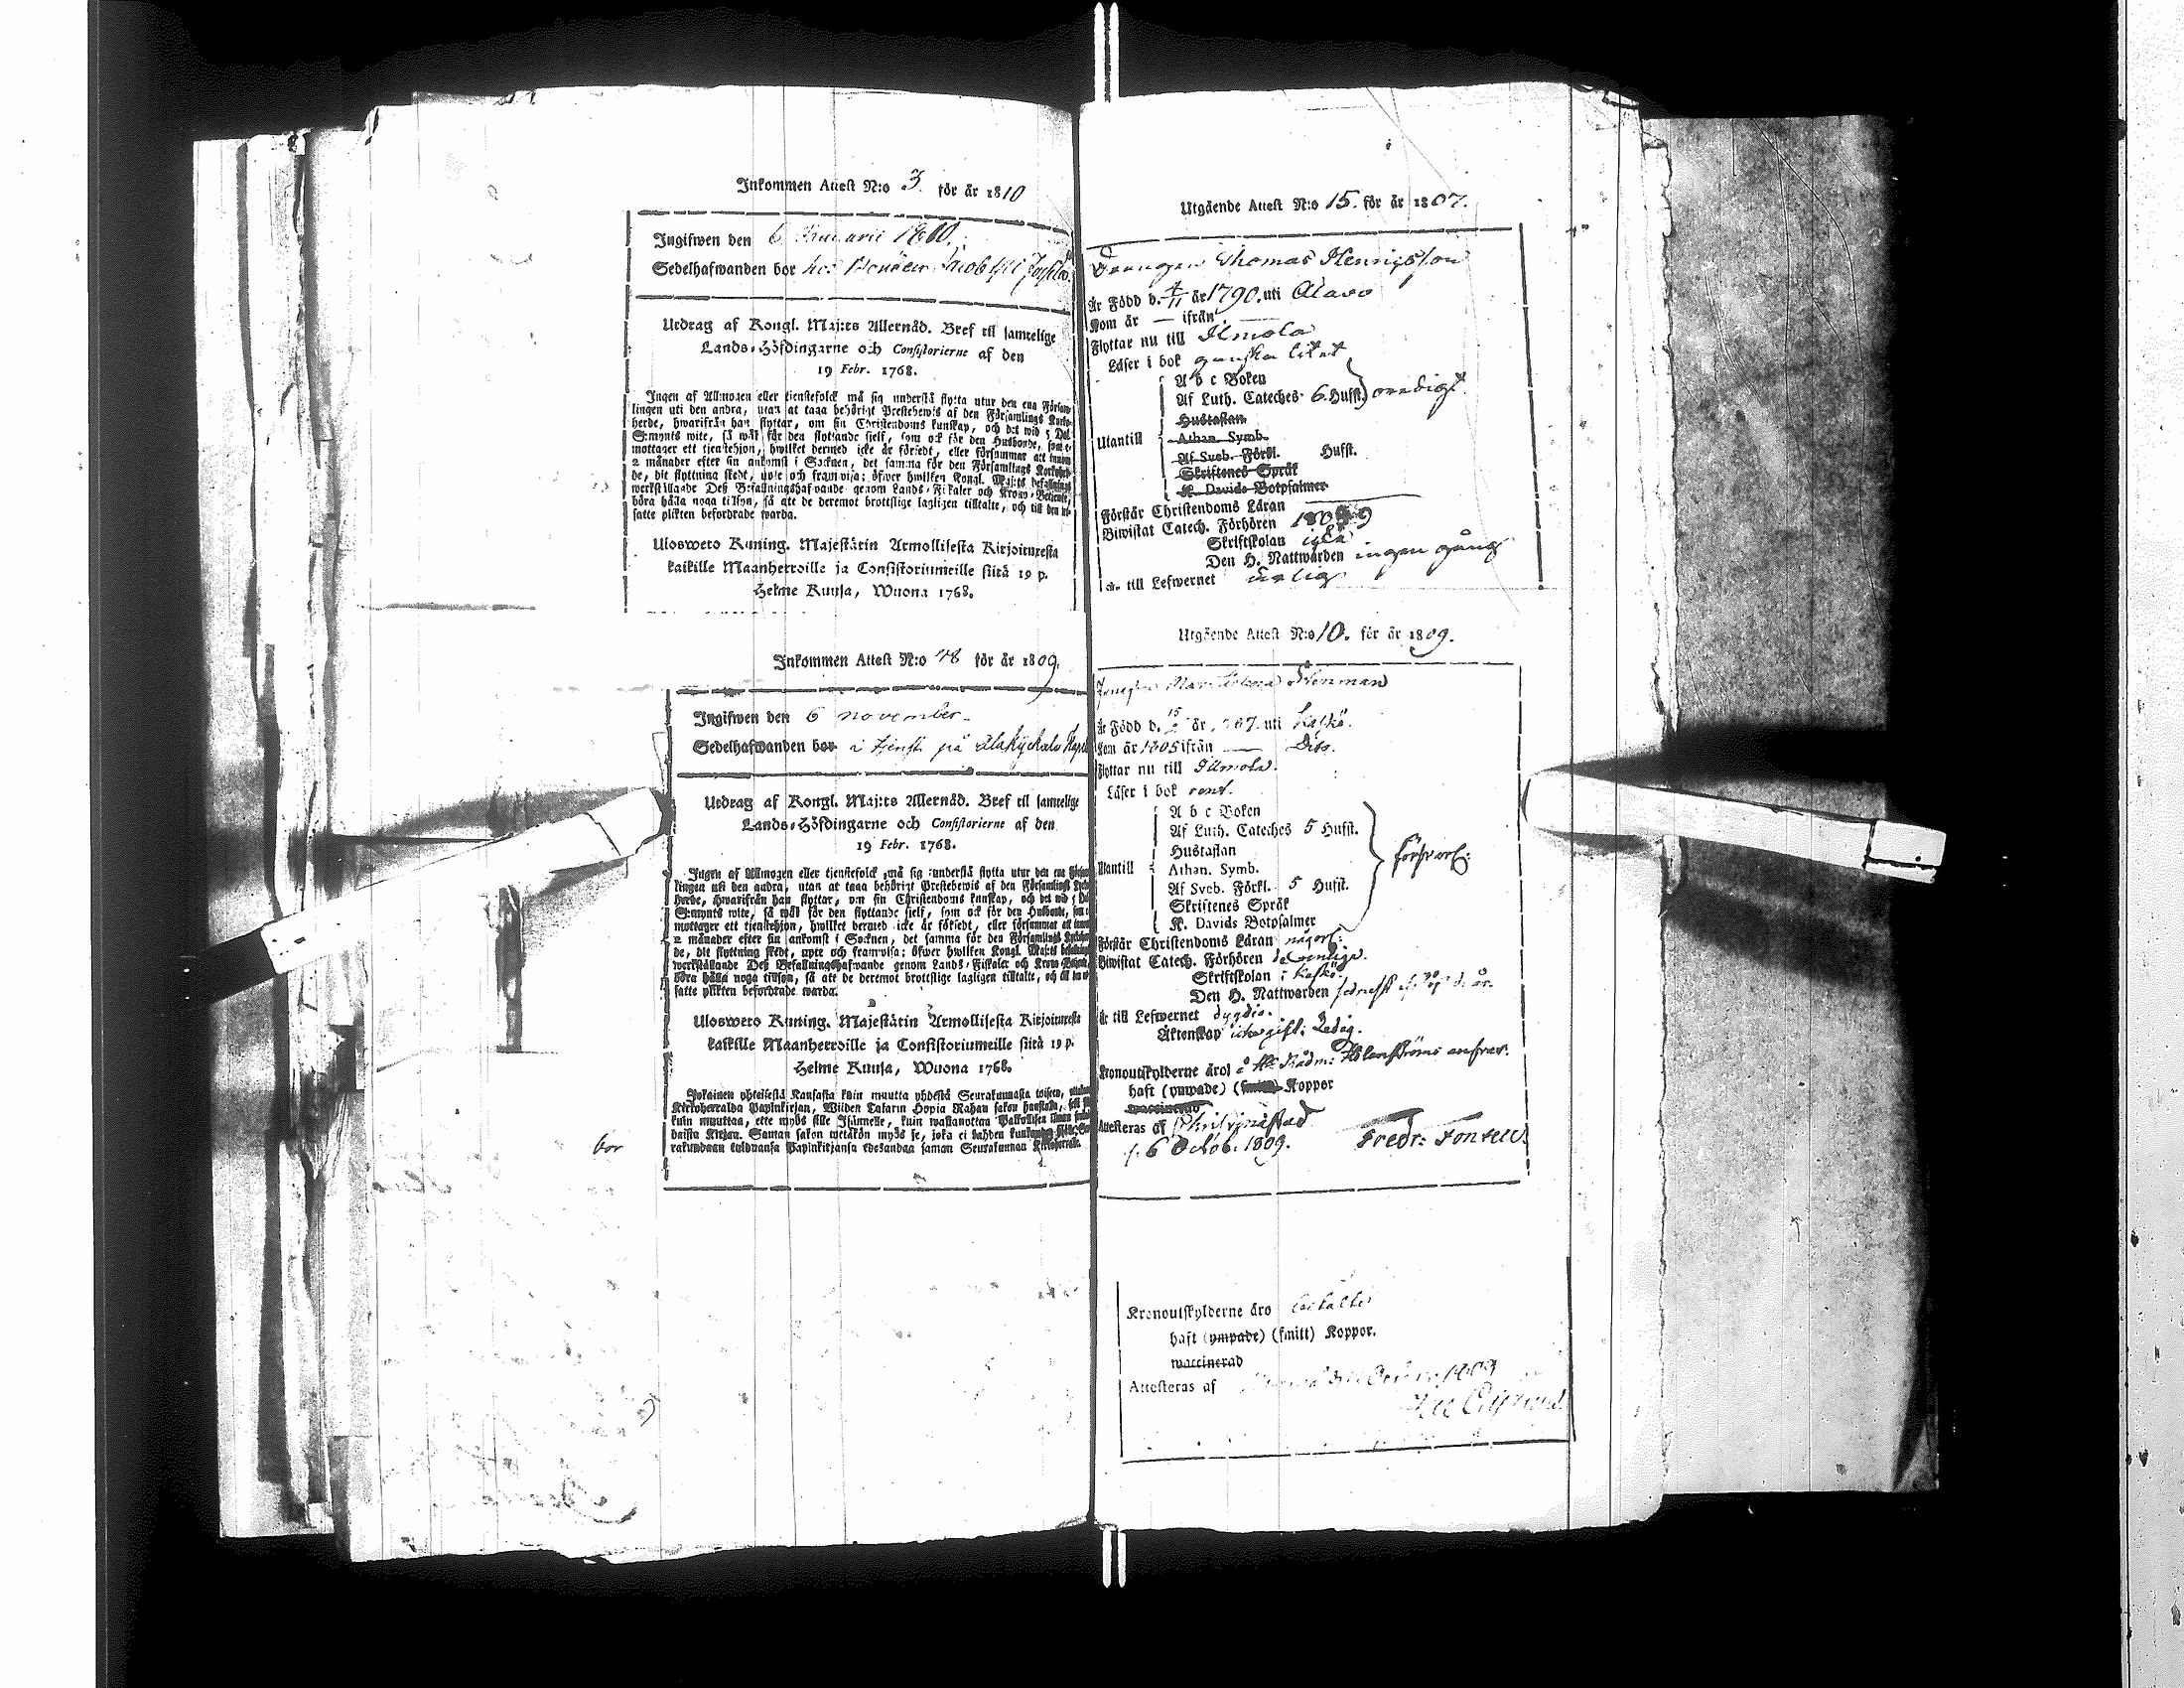 Inkommen Attest N:o 3 för år 1810
Ingifwen den 6 Januarii 1810.
Sedelhafwanden bor hos Bonden Jacob
Utdrag af Kongl. Maj:ts Allernåd. Bref til samtelige
Lands-Höfdingarne och Consistorierne af den
19 Febr. 1768.
Ingen af Allmogen eller tjenstefolck må sig understå flytta utur den ena Försam-
lingen uti den andra, utan at taga behörigt Prestebewis af den Församlings Kyrko-
herde, hwarifrån han flyttar, om sin Christendoms kunskap, och det wid 5 Dal.
S:mynts wite, så wäl för den flyttande sielf, som ock för den Husbonde, som e-
mottager ett tjenstehjon, hwilket dermed icke är försedt, eller försummar att innom
2 månader efter sin ankomst i Socknen, det samma för den Församlings Kyrkoher-
de, dit flyttning skedt, upte och framwisa; öfwer hwilken Kongl. Maj:ts befallning
werkställande Deß Befallningshafwande genom Lands-Fiskaler och Krono-Betjente,
böra hålla noga tilsyn, så att de deremot brottslige lagligen tilltalte, och till den ut-
satte plikten befordrade warda.
Uloswero Kuning. Majestätin Armollisesta Kirjoituresta
kaikille Maanherroille ja Consistoriumeille siitä 19 p.
Helme Kuusa, Wuona 1768.
Inkommen Attest N:o 48 för år 1809.
Ingifwen den 6 november.
Sedelhafwanden bor i tjenst på Alakyckala
Utdrag af Kongl. Maj:ts Allernåd. Bref til samtelige
Lands-Höfdingarne och Consistorierne af den
19 Febr. 1768.
Ingen af Allmogen eller tjenstefolck må sig understå flytta utur den ena Försam
lingen uti den andra, utan at taga behörigt Prestebewis af den Församlings Kyrko
herde, hwarifrån han flyttar, om sin Christendoms kunskap, och det wid 5 Dal
S:mynts wite, så wäl för den flyttande sielf, som ock för den Husbonde, som e
mottager ett tjenstehjon, hwilket dermed icke är försedt, eller försummar att innom
2 månader efter sin ankomst i Socknen, det samma för den Församlings Kyrkoher
de, dit flyttning skedt, upte och framwisa; öfwer hwilken Kongl. Maj:ts befallning
werkställande Deß Befallningshafwande genom Lands-Fiskaler och Krono-Betjente,
böra hålla noga tilsyn, så att de deremot brottslige lagligen tilltalte, och till den ut
satte plikten befordrade warda.
Uloswero Kuning. Majestätin Armollisesta Kirjoituresta
kaikille Maanherroille ja Consistoriumeille siitä 19 p.
Helme Kuusa, Wuona 1768.
Jokainen yhteisestä Kansasta kuin muutta yhdestä Seurakunnasta toiseen,
Kirkoherralda Papinkirjan, Wiiden Talarin Hopia Rahan sakon haastolla,
kuin muuttaa, ette myös sille Isännelle, kuin wastanottaa Palkollisen ilman
daista Kirjan. Saman sakon wetäkön myös se, joka ei kahden kuukauden
rakundaan tulduansa Papinkirjansa edesandaa saman Seurakunnan Kirkoherralle.
bor
Utgående Attest N:o 15. för år 1807.
Drängen Thomas Henrigsson
Är Född d. 4/11 år 1790. uti Alavo
Kom år — ifrån —
Flyttar nu till Ilmola
Läser i bok ganska litet
A b c Boken
Af Luth. Cateches 6. Hufst. oredigt
Hustaflan
Utantill
Athan. Symb.
Af Sveb. Förkl. Hufst.
Skriftenes Språk
K. Davids Botpsalmer
Förstår Christendoms Läran
Biwistat Catech. Förhören 1809
Skriftskolan icke
Den H. Nattwarden ingen gång
är till Lefwernet ärlig
Utgående Attest N:o 10. för år 1809.
Stenman
Är Född d. 15 år 767. uti Kaskö.
Kom år 1805 ifrån — Dito.
Flyttar nu till Ilmola.
Läser i bok rent.
A b c Boken
Af Luth. Cateches 5 Hufst.
Hustaflan
Utantill
Athan. Symb.
Af Sveb. Förkl. 5 Hufst.
Skriftenes Språk
K. Davids Botpsalmer
Förstår Christendoms Läran någorl:
Biwistat Catech. Förhören
Skriftskolan i Kaskö.
Den H. Nattwarden
är till Lefwernet dygdig.
Äktenskap icke gift: Ledig.
Kronoutskylderne äro
haft (ympade) (smitt) Koppor
waccinerad
Attesteras af Christinestad
d. 6 Octob. 1809. Fredr: Fontell
Kronoutskylderne äro betalte
haft (ympade) (smitt) Koppor.
waccinerad
Attesteras af 1809